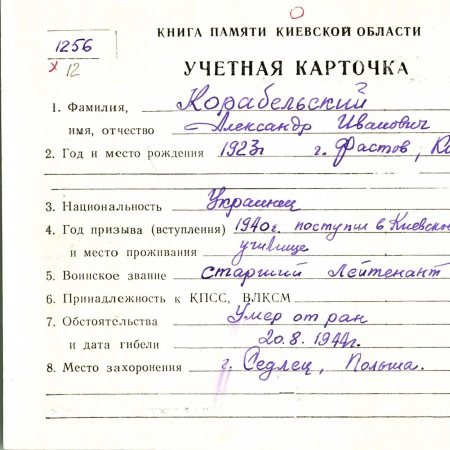 КНИГА ПАМЯТИ КИЕВСКОЙ ОБЛАСТИ
1256
x 12
УЧЕТНАЯ КАРТОЧКА
1. Фамилия, Корабельский
имя, отчество Александр Иванович
2. Год и место рождения 1923г г. Фастов,
3. Национальность Украинец
4. Год призыва (вступления) 1940г. поступил в Киевско
и место проживания училище
5. Воинское звание старший лейтенант
6. Принадлежность к КПСС, ВЛКСМ
7. Обстоятельства Умер от ран
и дата гибели 20.8.1944г.
8. Место захоронения г. Седлец, Польша.